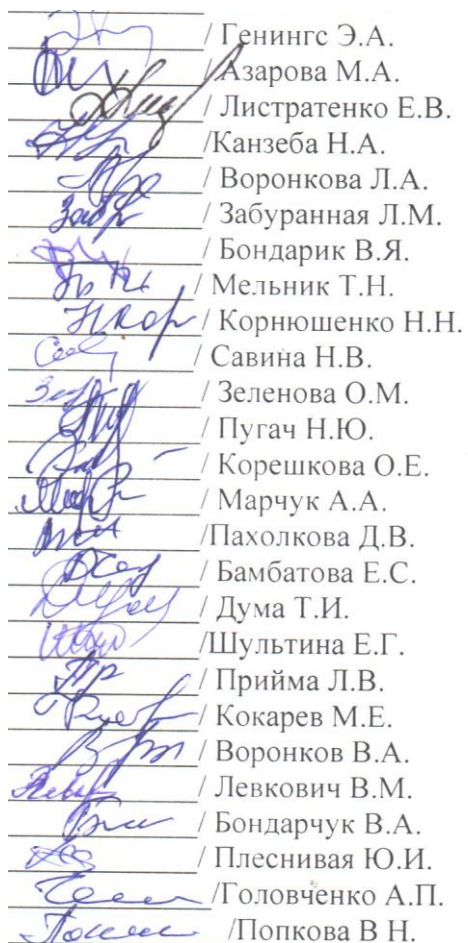 / Генингс Э.А.
/Азарова М.А.
/ Листратенко Е.В.
/Канзеба Н.А.
/ Воронкова Л.А.
/ Забуранная Л.М.
/ Бондарик В.Я.
/ Мельник Т.Н.
/ Корнюшенко Н.Н.
/ Савина Н.В.
/ Зеленова О.М.
/ Пугач Н.Ю.
/ Корешкова О.Е.
/ Марчук А.А.
/Пахолкова Д.В.
/ Бамбатова Е.С.
/ Дума Т.И.
/Шультина Е.Г.
/ Прийма Л.В.
/ Кокарев М.Е.
/ Воронков В.А.
/ Левкович В.М.
/ Бондарчук В.А.
/ Плеснивая Ю.И.
/Головченко А.П.
/Попкова В Н.